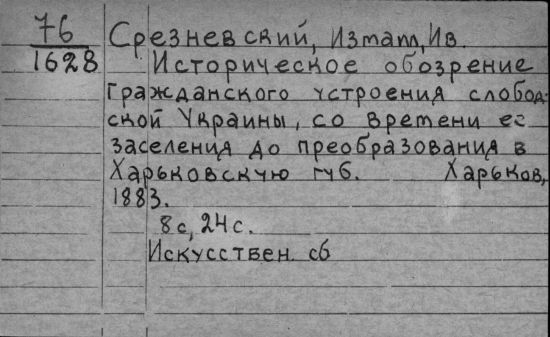 76
1628
Срезневский, Измаил, Ив.
Историческое обозрение
Гражданского устроения слобод-
ской Украины, со времени ее
заселения до преобразования в
Харьковскую губ. Харьков,
1883.
8с, 24с.
Искусствен. сб